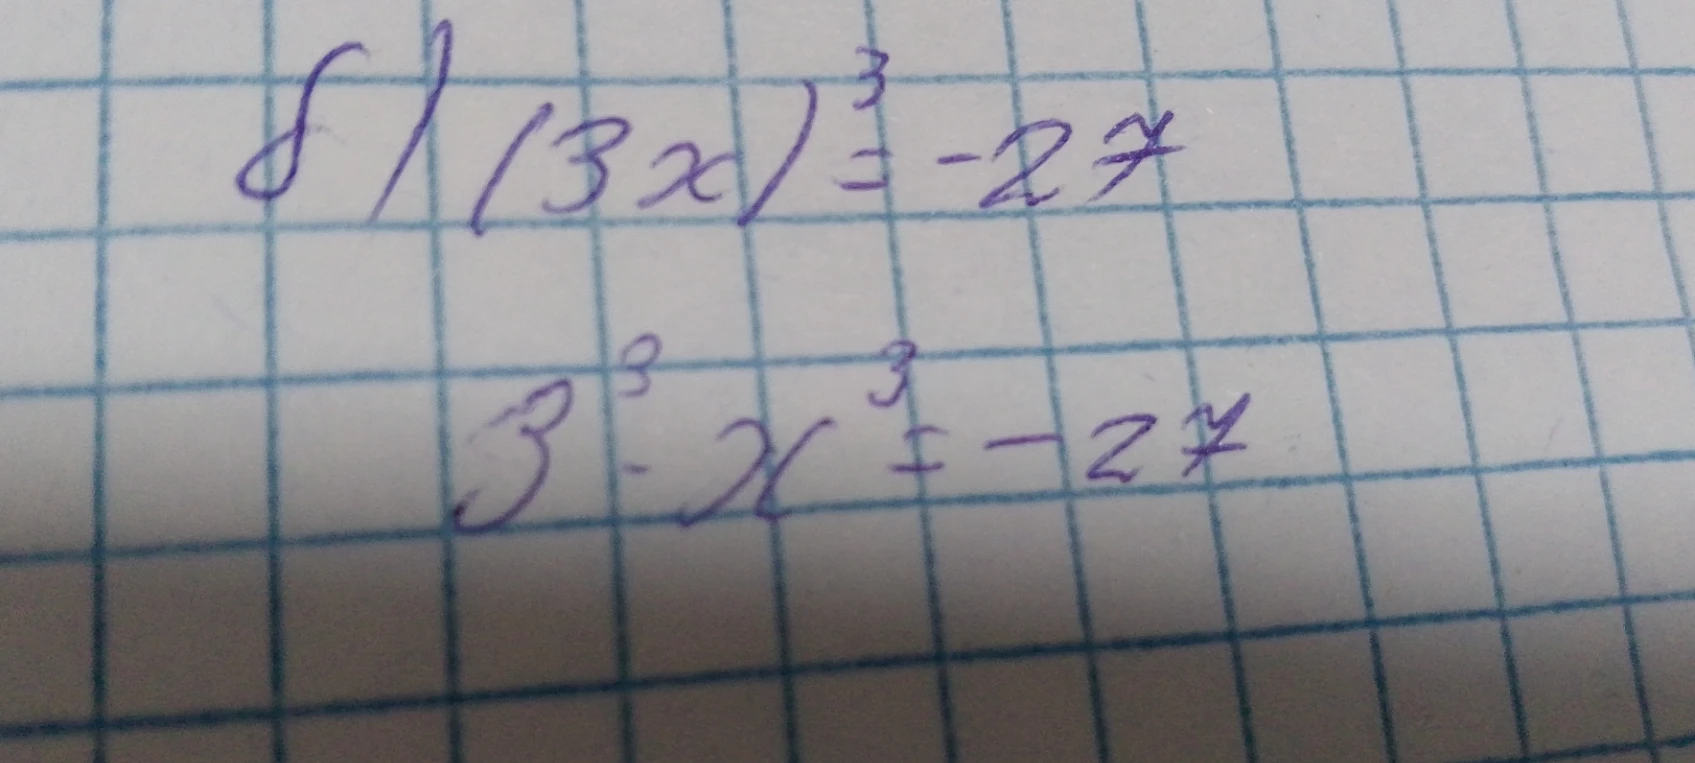 б) (3x)³ = -27
3³ · x³ = - 27